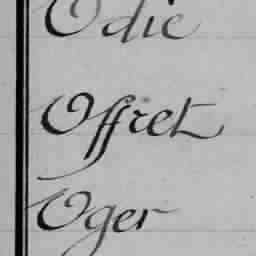 Odic
Offret
Oger